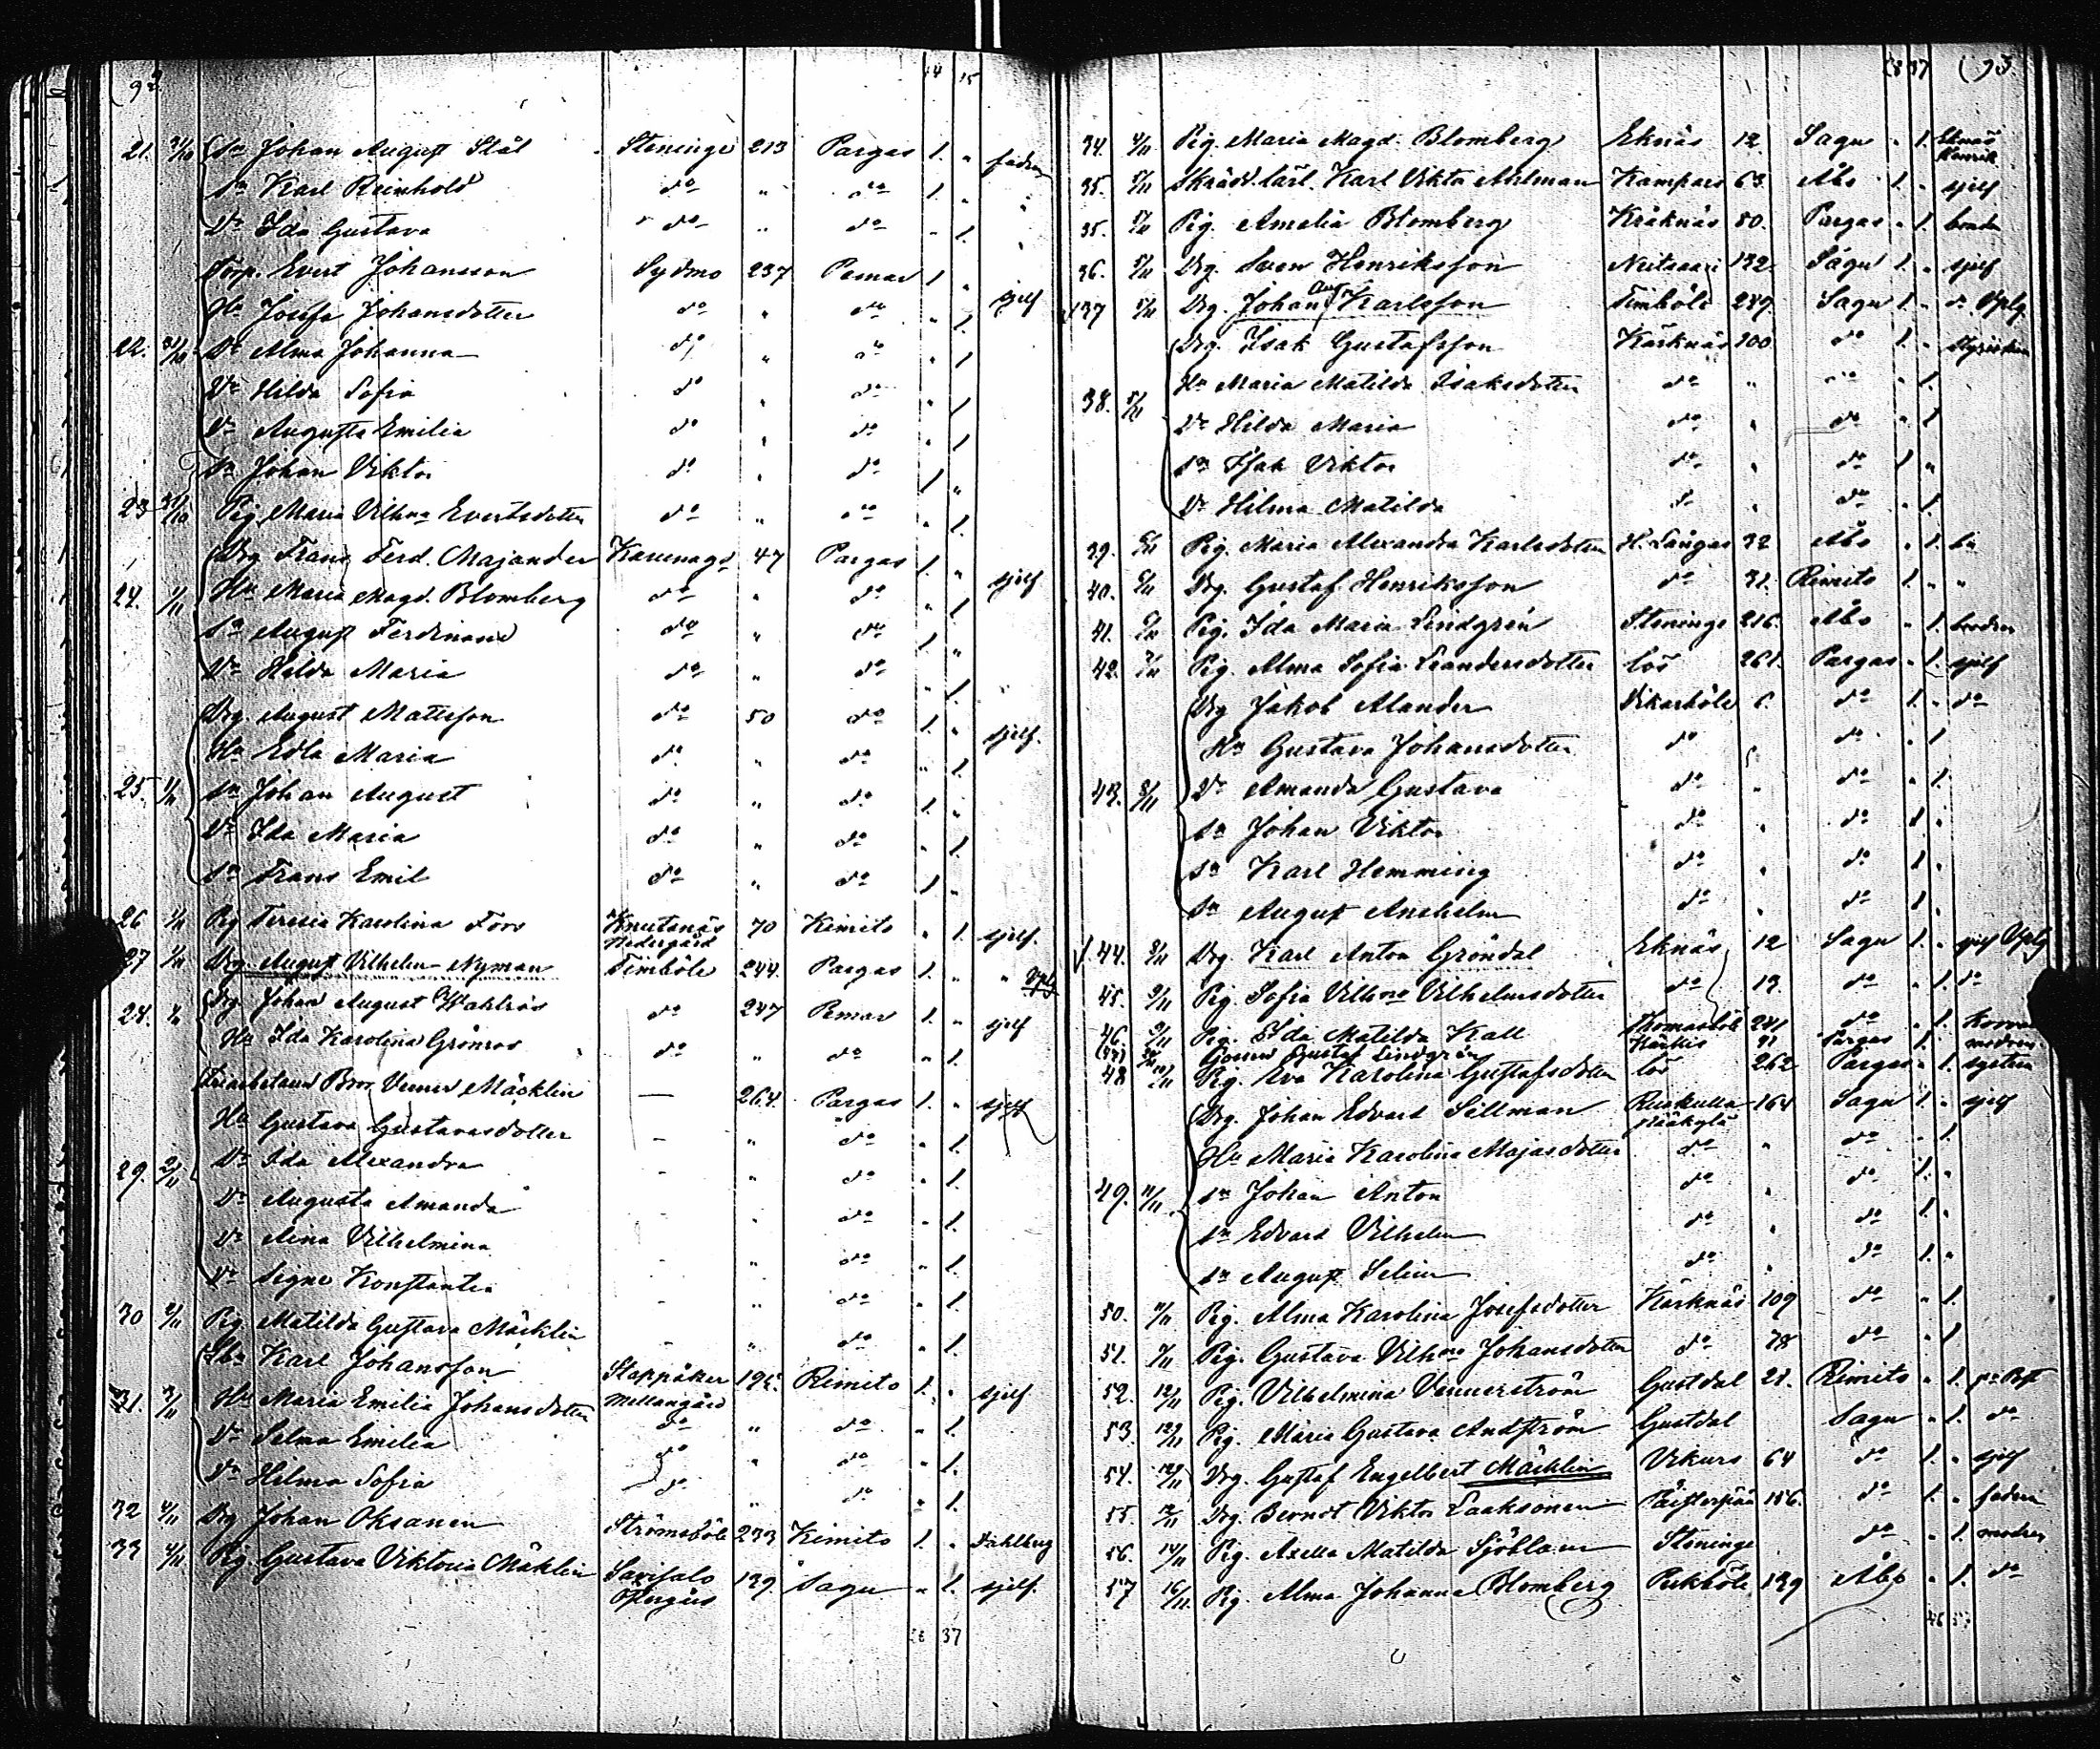 (92 14 15
21. 31/10 Sn Johan August Stål Steninge 213 Pargas 1. " fadren
Sn Karl Reinhold do " do 1. "
Dr Ida Gustava do " do " 1.
Torp. Evert Johansson Sydmo 237 Pemar 1 "
Hu Josefa Johansdotter do " do " 1. sjelf
22. 31/10 Dr Alma Johanna do " do " 1
Dr Hilda Sofia do " do " 1
Dr Augusta Emilia do " do " 1
Sn Johan Viktor do " do 1 "
23 31/10 Pig. Maria Vilhna Evertsdotter do " do " 1.
Drg Frans Ferd. Majander 47 Pargas 1. "
24. 1/11 Hu Maria Magd. Blomberg do " do " 1 sjelf
Sn August Ferdinand do " do 1 "
Dr Hilda Maria do " do " 1.
Drg. August Mattsson do 50 do 1. "
Hu Edla Maria do " do " 1. sjelf.
25. 1/11 Sn Johan August do " do 1. "
Dr Ida Maria do " do " 1.
Sn Frans Emil do " do 1 "
26 1/11 Pig Teresia Karolina Fors Knutnäs Nedergård 70 Kimito " 1. sjelf.
27 1/11 Drg. August Vilhelm Nyman Timböle 244. Pargas 1. "
28. Drg Johan August Wahlroos do 247 Pemar 1. " sjelf
Hu Ida Karolina Grönroos do " do " 1.
Bror Verner Mäcklin — 264. Pargas 1. " sjelf
Hu Gustava Gustavasdotter - " do " 1.
29. 2/11 Dr Ida Alexandra - " do " 1.
Dr Augusta Amanda - " do " 1.
Dr Aina Vilhelmina - " do " 1.
Dr Signe Konstantia - " do " 1.
30 2/11 Pig. Matilda Gustava Mäcklin - " do " 1.
Karl Johansson Stappåker Mellangård Kimito 1. " sjelf
31. 3/11 Hu Maria Emilia Johansdotter do " do " 1.
Dr Selma Emilia do " do " 1.
Dr Hilma Sofia do " do " 1.
32 4/11 Drg Johan Oksanen Strömsböle 233 Kimito 1. " Dahlberg
33 4/11 Pig Gustava Viktoria Mäcklin Savisalo 139. Sagu " 1. sjelf.
37
37 (93
34. 4/11 Pig. Maria Magd. Blomberg Eknäs 12. Sagu " 1. Eknäs Henrik
35. 5/11 Skrädd.lärl. Karl Viktor Ahlman Kampars 63. Åbo 1. " sjelf
35. 5/11 Pig. Amalia Blomberg Kräknäs 80. Pargas " 1.
36. 5/11 Drg. Sven Henriksson 132 Sagu 1. " sjelf
137 5/11 Drg. Johan Aug Karlsson Timböle 239. Sagu 1. " do
Drg. Isak Gustafsson Kärknäs 100 do 1. "
Hu Maria Matilda Isaksdotter do " do " 1.
38. 5/11 Dr Hilda Maria do " do " 1
Sn Isak Viktor do " do 1 "
Dr Hilma Matilda do " do " 1.
39. Pig. Maria Alexandra Karlsdotter H. Långas 32 Åbo " 1.
40. Drg. Gustaf Henriksson do 32. Kimito 1. " "
41. Pig. Ida Maria Lindgrén Steninge 216. Åbo " 1.
42. 7/11 Pig. Alma Sofia Leandersdotter lös 261. Pargas " 1. sjelf
Drg Jakob Alander Vikarböle 6. do 1. " do
Hu Gustava Johansdotter do " do " 1
43. 8/11 Dr Amanda Gustava do " do " 1.
Sn Johan Viktor do " do 1 "
Sn Karl Hemming do " do 1. "
Sn August Anshelm do " do 1. "
44. 8/11 Drg. Karl Anton Gröndal Eknäs 12 Sagu 1. " sjelf
45. 9/11 Pig. Sofia Vilhna Vilhelmsdotter do 19. do " 1. do
46. 9/11 Pig. Ida Matilda Kall Thomasböle 241 do " 1.
(47) Gustaf Lindgrén Pargas 1. " modren
48 Pig. Eva Karolina Gustafsdotter lös 262 Pargas " 1. system
Drg. Johan Edvard Sillman 164 Sagu 1. " sjelf
Hu Maria Karolina Majasdotter do " do " 1.
49. 11/11 Sn Johan Anton do " do 1. "
Sn Edvard Vilhelm do " do 1. "
Sn August Selim do " do 1. "
50. 11/11 Pig. Alma Karolina Josefsdotter Kärknäs 109 do " 1.
51. Pig. Gustava Vilhna Johansdotter do 78 do " 1
52. 12/11 Pig. Vilhelmina Vennerström Gustdal 21. Kimito " 1.
53. 12/11 Pig. Maria Gustava Andström Gustdal Sagu " 1. do
54. 12/11 Drg. Gustaf Engelbert Mäcklin 64 do 1. " sjelf
55. Drg. Berndt Viktor Laaksonen 156. do 1. " fadren
56. 14/11 Pig. Axella Matilda Sjöblom Steninge do " 1. modren
57 16/11 Pig. Alma Johanna Blomberg Pukböle 139 Åbo " 1. do